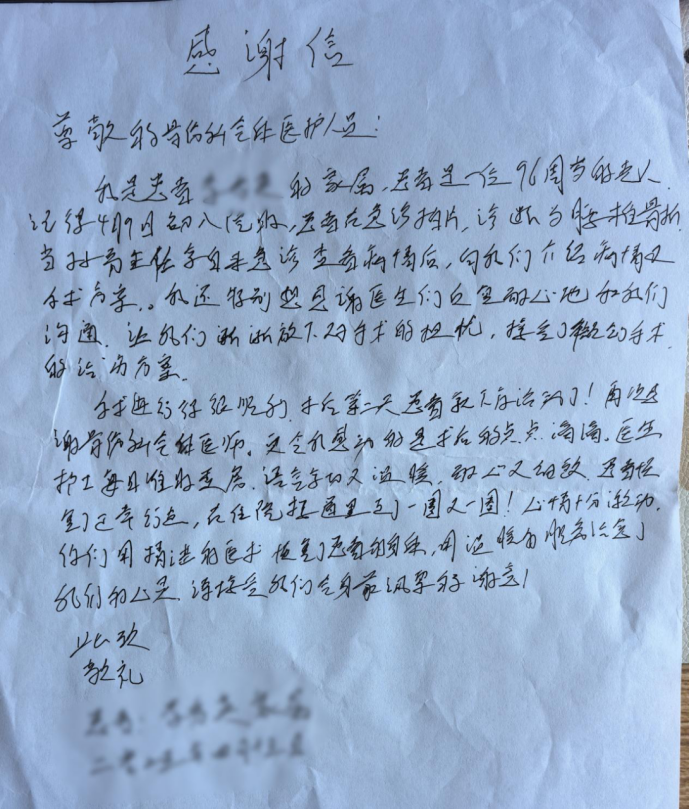 感谢信
尊敬的骨伤科全体医护人员：
我是患者的家属，患者是一位96周岁的老人，
记得4月9日初入院时，患者在急诊拍片，诊断为腰椎骨折，
当时主任亲自来急诊查看病情后，向我们介绍病情及
手术方案。我还特别想感谢医生们反复耐心地和我们
沟通，让我们渐渐放下对手术的担忧，接受了微创手术
的治疗方案。
手术进行得很顺利，术后第二天患者就下床活动了！再次感
谢骨伤科全体医师。更令我感动的是术后的点点滴滴，医生
护士每日准时查房，语气亲切又温暖，耐心又细致，患者
了正常行走，在住院楼道里走了一圈又一圈！心情十分激动，
你们用精湛的医术恢复了患者的身体，用温暖的服务治愈了
我们的心灵，请接受我们全家最深厚的谢意！
此致
敬礼